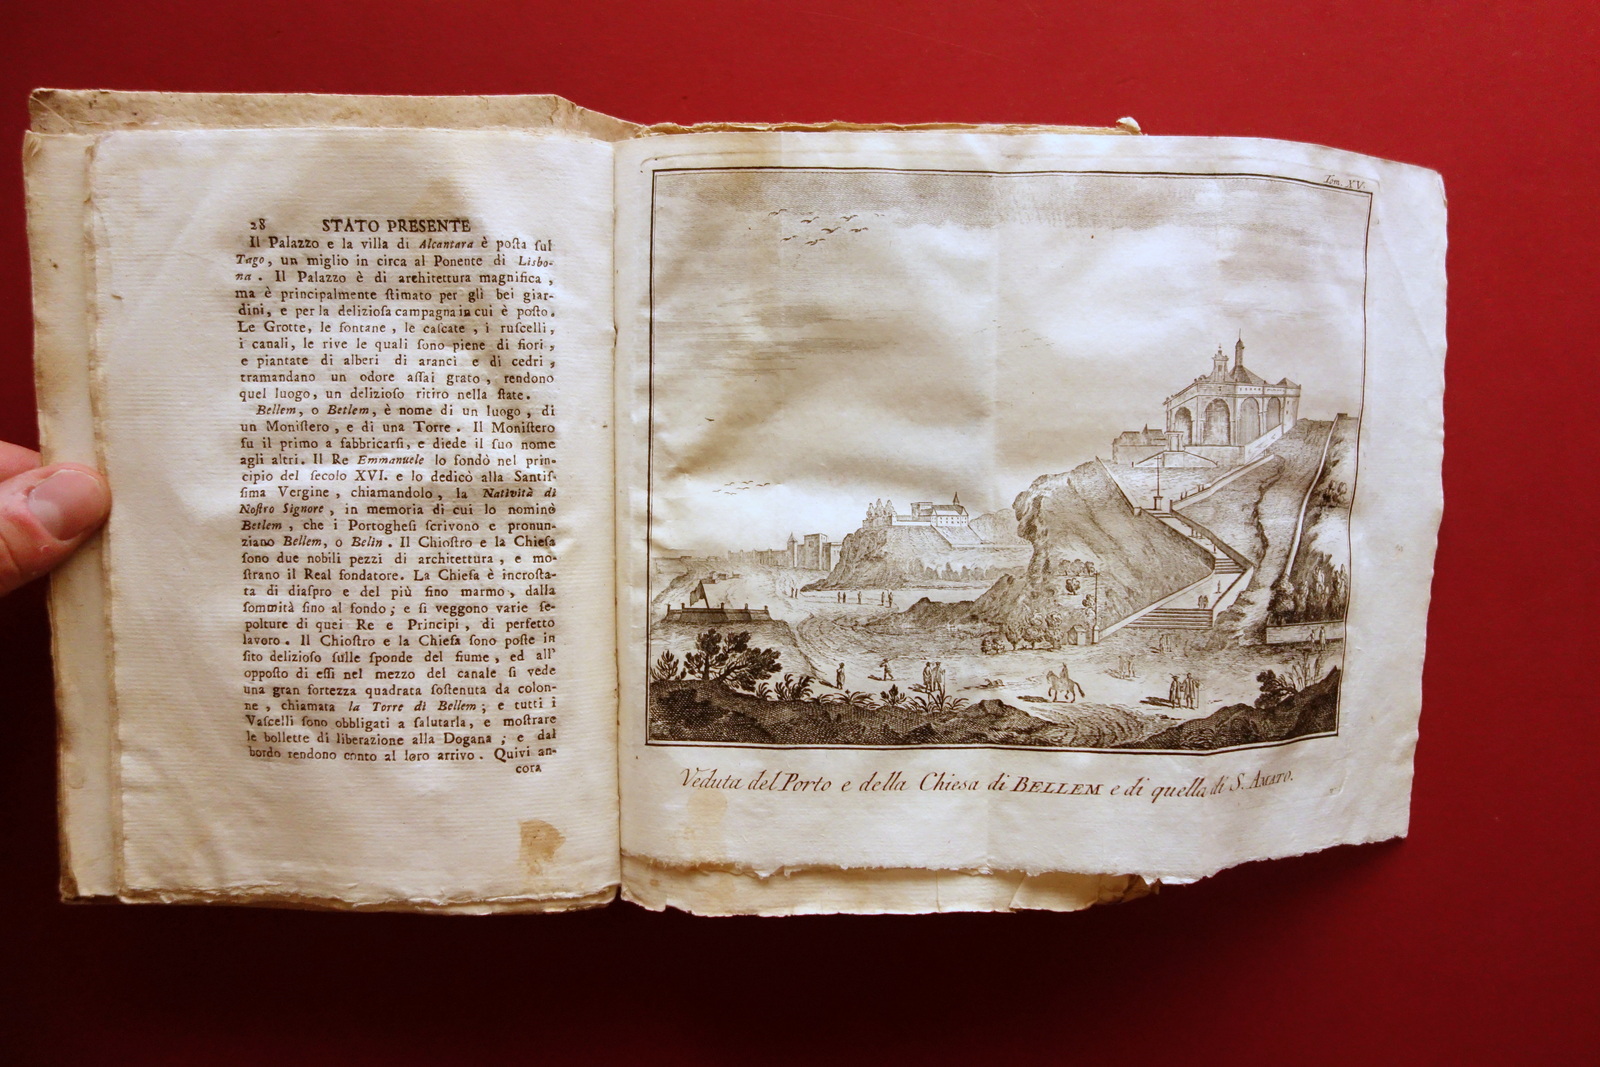 28 STATO PRESENTE
Il Palazzo e la villa di Alcantara è poſta ſul
Tago, un miglio in circa al Ponente di Lisbo-
na. Il Palazzo è di architettura magnifica,
ma è principalmente ſtimato per gli bei giar-
dini, e per la delizioſa campagna in cui è poſto.
Le Grotte, le fontane, le caſcate, i ruſcelli,
i canali, le rive le quali ſono piene di fiori,
e piantate di alberi di aranci e di cedri,
tramandano un odore aſſai grato, rendono
quel luogo, un delizioſo ritiro nella ſtate.
Bellem, o Betlem, è nome di un luogo, di
un Moniſtero, e di una Torre. Il Moniſtero
fu il primo a fabbricarſi, e diede il ſuo nome
agli altri. Il Re Emmanuele lo fondò nel prin-
cipio del ſecolo XVI. e lo dedicò alla Santiſ-
ſima Vergine, chiamandolo, la Natività di
Noſtro Signore, in memoria di cui lo nominò
Betlem, che i Portogheſi ſcrivono e pronun-
ziano Bellem, o Belin. Il Chioſtro e la Chieſa
ſono due nobili pezzi di architettura, e mo-
ſtrano il Real fondatore. La Chieſa è incroſta-
ta di diaſpro e del più fino marmo, dalla
ſommità fino al fondo; e ſi veggono varie ſe-
polture di quei Re e Principi, di perfetto
lavoro. Il Chioſtro e la Chieſa ſono poſte in
ſito delizioſo ſulle ſponde del fiume, ed all'
oppoſto di eſſi nel mezzo del canale ſi vede
una gran fortezza quadrata ſoſtenuta da colon-
ne, chiamata la Torre di Bellem; e tutti i
Vaſcelli ſono obbligati a ſalutarla, e moſtrare
le bollette di liberazione alla Dogana; e dal
bordo rendono conto al loro arrivo. Quivi an-
cora
Tom. XV.
Veduta del Porto e della Chiesa di BELLEM e di quella di S. AMATO.